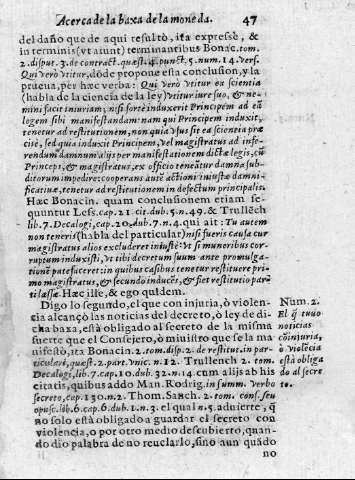 Acerca de la baxa de la moneda. 47
del daño que de aqui resultò, ita expressè, &
in terminis (vt aiunt) terminantibus Bonac. tom.
2. disput. 3. de contract. quæst. 4. punct. 5. num. 14. vers.
Qui verò vtitur, dõde propone esta conclusion, y la
prueua, per hæc verba: Qui verò vtitur ea scientia
(habla de la ciencia de la ley) vtitur iure suo, & ne-
mini facit iniuriam; nisi fortè induxerit Principem ad eã
legem sibi manifestandam: nam qui Principem induxit,
tenetur ad restitutionẽm, non quia vsus sit ea scientia præ
cisè, sed quia induxit Principem, vel magistratus ad infe-
rendum damnum alijs per manifestationem dictæ legis, cũ
Princeps, & magistratus, ex officio teneãtur damna sub-
ditorum impedire: cooperans autẽ actioni iniustæ damni-
ficatiuæ, tenetur ad restitutionem in defectum principalis.
Hæc Bonacin. quam conclusionem etiam se-
quuntur Less. cap. 21. cit. dub. 5. n. 49. & Trullẽch
lib. 7. Decalogi, cap. 20. dub. 7. n. 4. qui ait: Tu autem
non teneris (habla del particular) nisi fueris causa cur
magistratus alios excluderet iniustè: Vt si muneribus cor-
ruptum induxisti, vt tibi decretum suum ante promulga-
tionẽ patefaceret: in quibus casibus tenetur restituere pri-
mo magistratus, & secundo inducẽs, & fiet restitutio par-
tilassæ. Hæc ille, & ego quidem.
Digo lo segundo, el que con injuria, ò violen-
cia alcançò las noticias del decreto, ò ley de di-
cha baxa, està obligado al secreto de la misma
suerte que el Consejero, ò ministro que se la ma
nifestò, ita Bonacin. 2. tom. disp. 2. de restitut. in par-
ticulari, quæst. 2. part. vnic. n. 12. Trullench 2. tom.
Decalogi, lib. 7. cap. 10. dub. 32. n. 14. cum alijs ab his
citatis, quibus addo Man. Rodrig. in summ. verbo
secreto, cap. 130. n. 2. Thom. Sanch. 2. tom. cons. seu
opusc. lib. 6. cap. 6. dub. 1. n. 3. el qual n. 5. aduierte, q̃
no solo està obligado a guardar el secreto con
violencia, o por otro medio descubierto, quan-
do dio palabra de no reuelarlo, sino aun quãdo
no
Num. 2.
El q̃ tuuo
noticias
cõ injuria,
ò violẽcia
està obliga
do al secre
to.